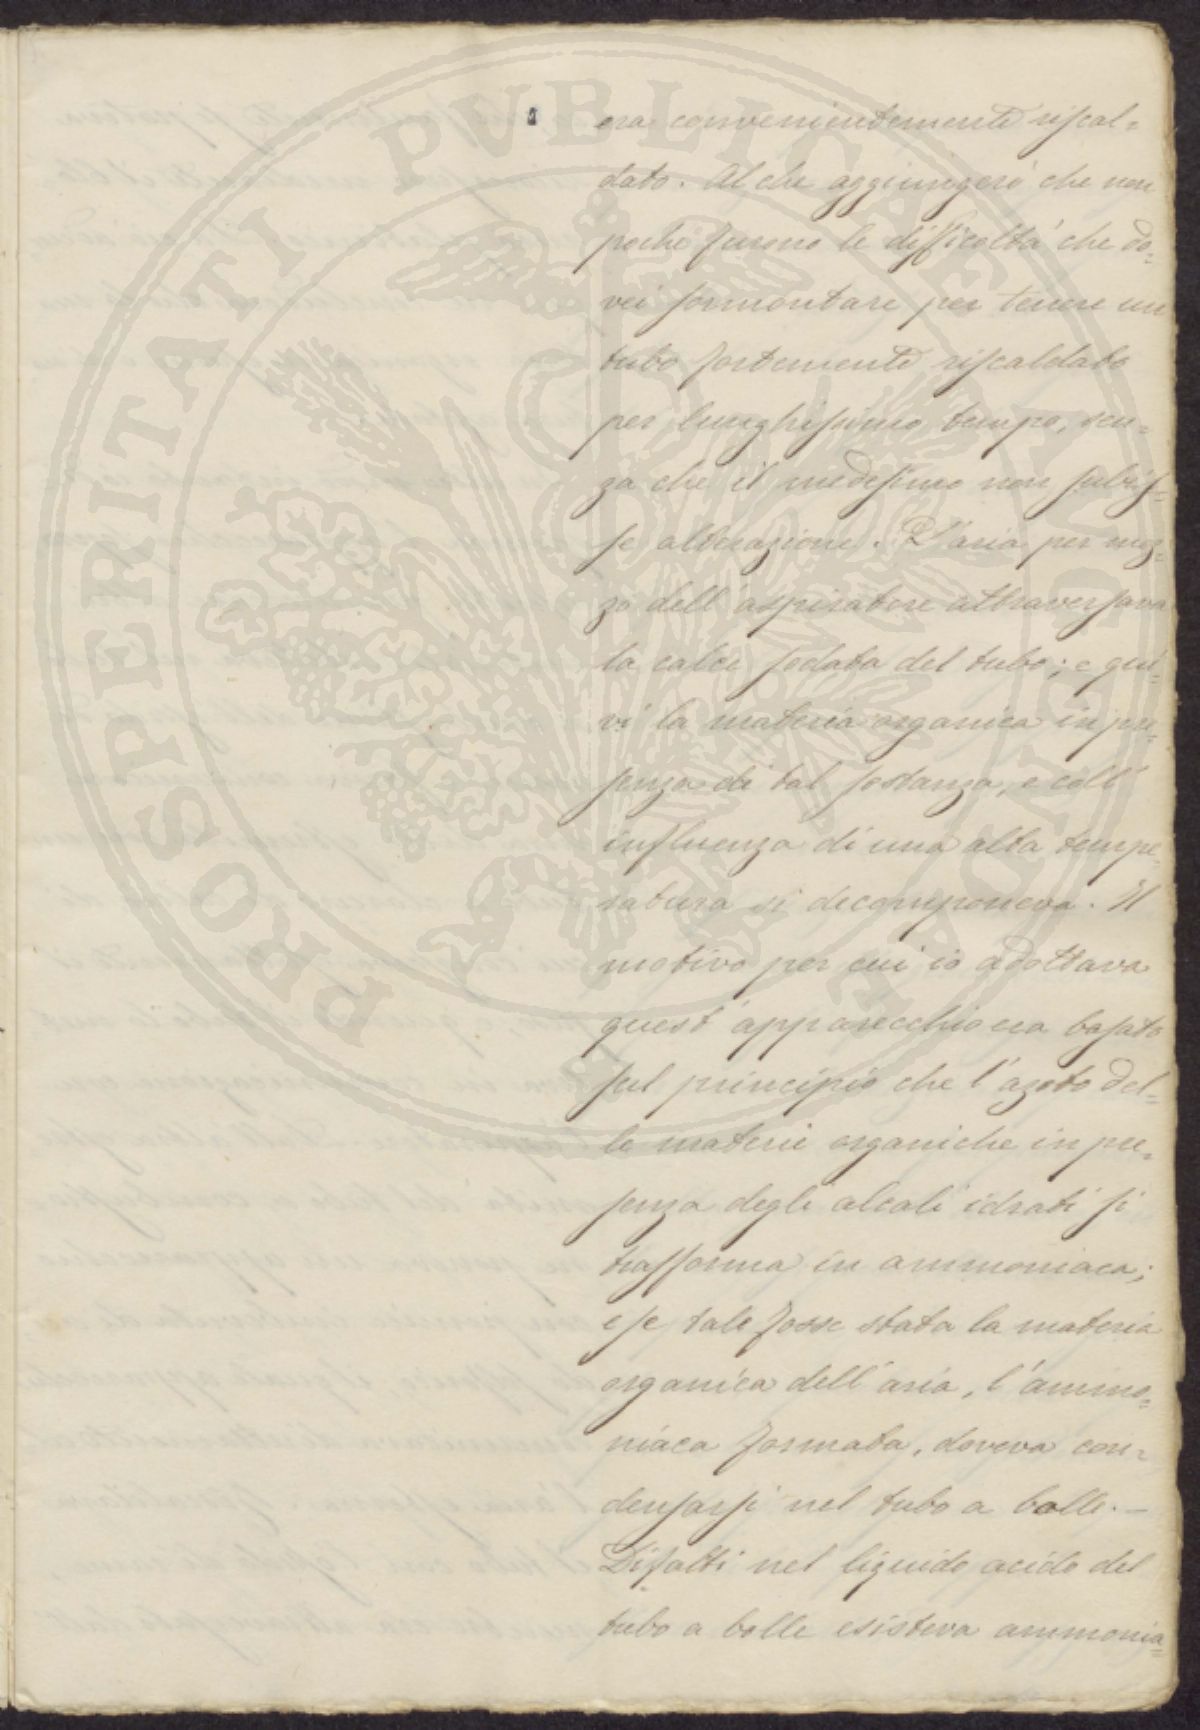 era convenientemente riscal=
dato. Al che aggiungerò che non
poche furono le difficoltà che do=
vei sormontare per tenere un
tubo fortemente riscaldato
per lunghissimo tempo, sen=
za che il medesimo non subis=
se alterazione. L'aria per mez=
zo dell'aspiratore attraversava
la calce sodata del tubo; e qui=
vi la materia organica in pre=
senza di tal sostanza, e coll'
influenza di una alta tempe=
ratura si decomponeva. Il
motivo per cui io adottava
quest'apparecchio era basato
sul principio che l'azoto del=
le materie organiche in pre=
senza degli alcali idrati si
trasforma in ammoniaca;
e se tale fosse stata la materia
organica dell'aria, l'ammo=
niaca formata, doveva con=
densarsi nel tubo a bolle. —
Difatti nel liquido acido del
tubo a bolle esisteva ammonia=
PROSPERITATI PUBLICAE AUGENDAE